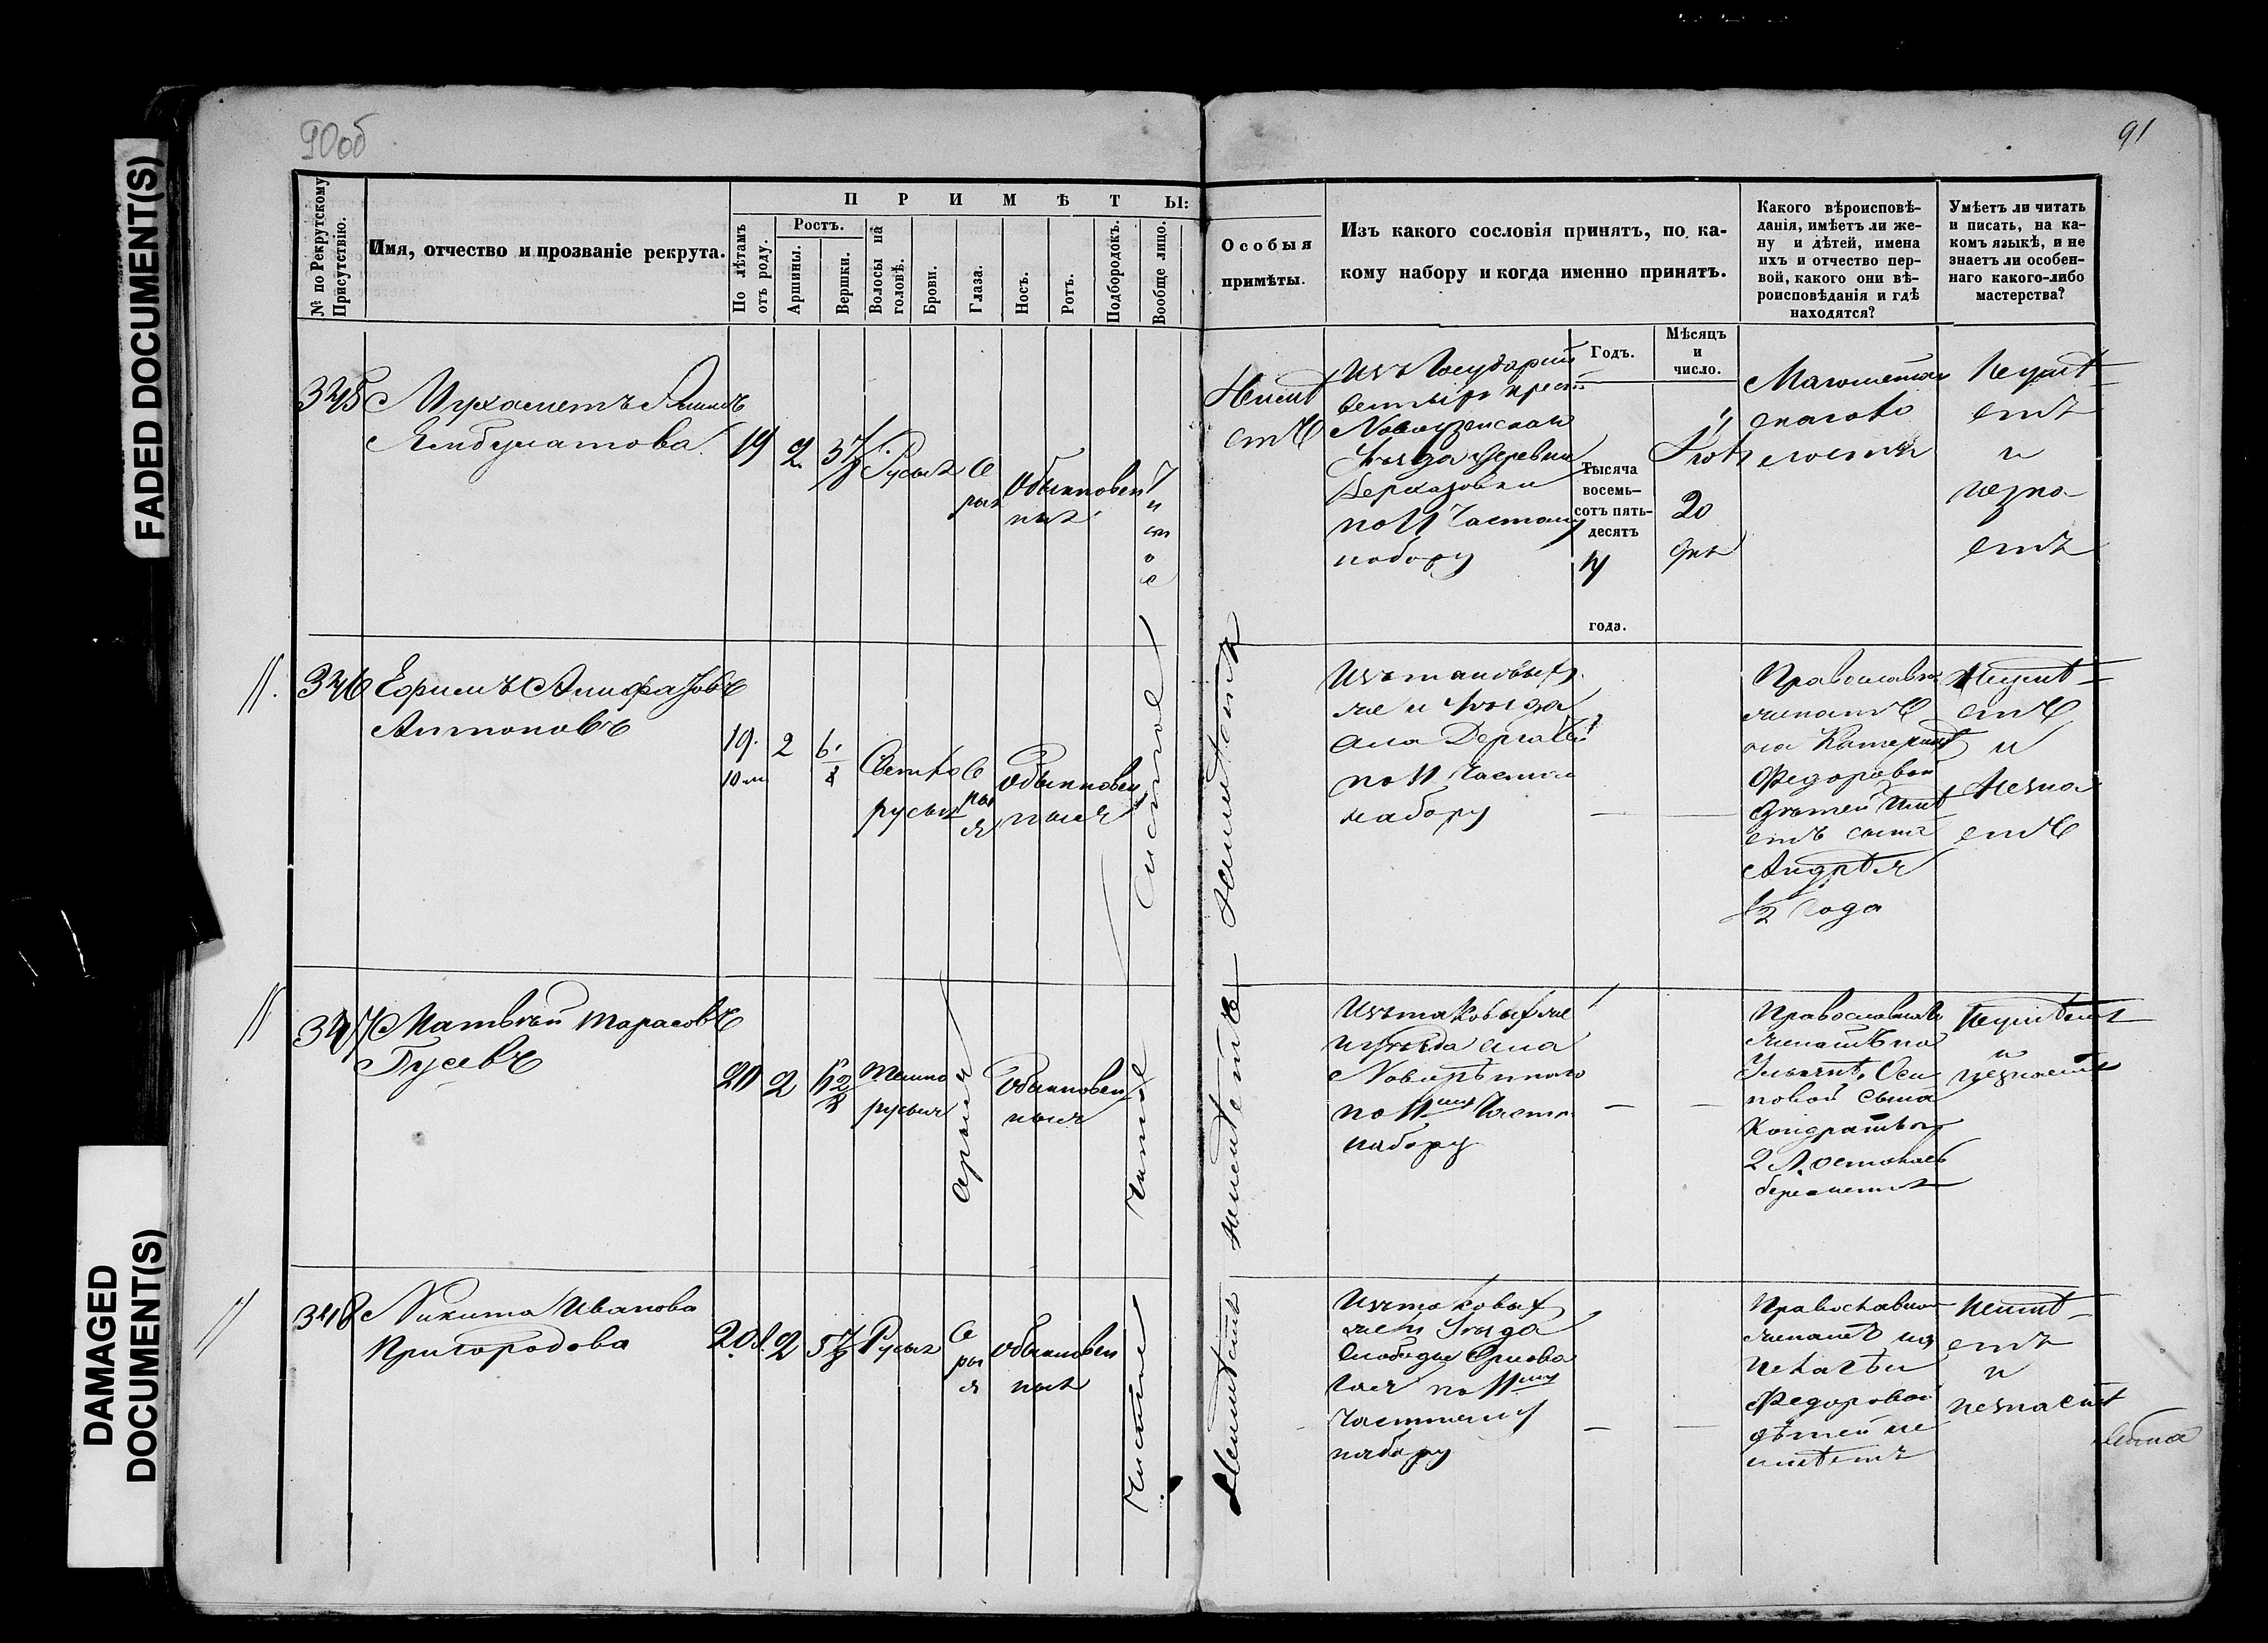 FADED DOCUMENT(S)
DAMAGED
DOCUMENT(S)
90об
91
№ по Рекрутскому
Присутствію.
Имя, отчество и прозваніе рекрута.
ПРИМѢТЫ:
По лѣтамъ
отъ роду.
Ростъ.
Аршины.
Вершки.
Волосы на
головѣ.
Брови.
Глаза.
Носъ.
Ротъ.
Подбородокъ.
Вообще лицо.
Особыя
примѣты.
Изъ какого сословія принятъ, по ка-
кому набору и когда именно принятъ.
Какого вѣроисповѣ-
данія, имѣетъ ли же-
ну и дѣтей, имена
ихъ и отчество пер-
вой, какого они вѣ-
роисповѣданія и гдѣ
находятся?
Умѣетъ ли читать
и писать, на ка-
комъ языкѣ, и не
знаетъ ли особен-
наго какого-либо
мастерства?
Годъ.
Мѣсяцъ
и
число.
345
Мухаметъ
Ямбулатова
19
2
3 7/8
Русыя
Се
рыя
Обыкновен
ныя
Чистое
Неимѣ
етъ
Изъ Государст
венныхъ крест
Новоузенскаго
Уѣзда деревни
по 11 Частному
набору
Тысяча
восемь-
сотъ пять-
десятъ
4
года.
20
дня
Магометан
скаго
Неумѣ
етъ
и
незна
етъ
346
Ефимъ
Антоновъ
19.
10 м
2
6 1/8
Светло
русыя
Се
ры
я
Обыкновен
ныя
Чистое
Неимѣетъ
Изъ таковыхъ
же и уѣзда
села Дергачей
по 11 Частном
набору
Православна
женатъ
на Катерине
Федоровой
дѣтей име
етъ сына
Андрѣя
1/2 года
Неумѣ
етъ
и
незна
етъ
347
Матвѣй Тарасовъ
Гусевъ
20
2
6 2/8
Темно
русыя
Серыя
Обыкновен
ныя
Чистое
неимѣетъ
Изъ таковыхъ же
и уѣзда села
по 11му Частн
набору
Православнаго
женатъ на
Ульянѣ Оси
повой сына
Кондратья
2 л. осталась
беременна
Неумѣетъ
и
незнаетъ
348
Никита Иванова
Пригородова
20 л.
2
5 7/8
Русыя
Се
ры
я
Обыкновен
ныя
Чистое
Неимѣетъ
Изъ таковыхъ
же и Уѣзда
Слободы Орлова
Гая по 11му
Частному
набору
Православнаго
женатъ на
Пелагѣи
Федоровой
дѣтей не
имѣетъ
Неумѣ
етъ
и
незнаетъ